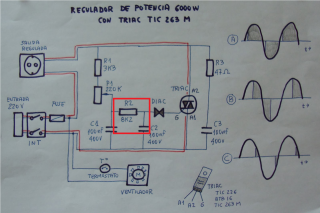 REGULADOR DE POTENCIA 6000W
CON TRIAC TIC 263 M
SALIDA
REGULADA
R1
3K3
P1
220K
R2
8K2
DIAC
TRIAC
A2
G
A1
R3
47Ω
ENTRADA
220V
FUSE
INT
C1
100nF
400V
C2
100nF
400V
C3
100nF
400V
TERMOSTATO
VENTILADOR
A
B
C
TRIAC
TIC 226
BTA 16
TIC 263M
A1 A2 G